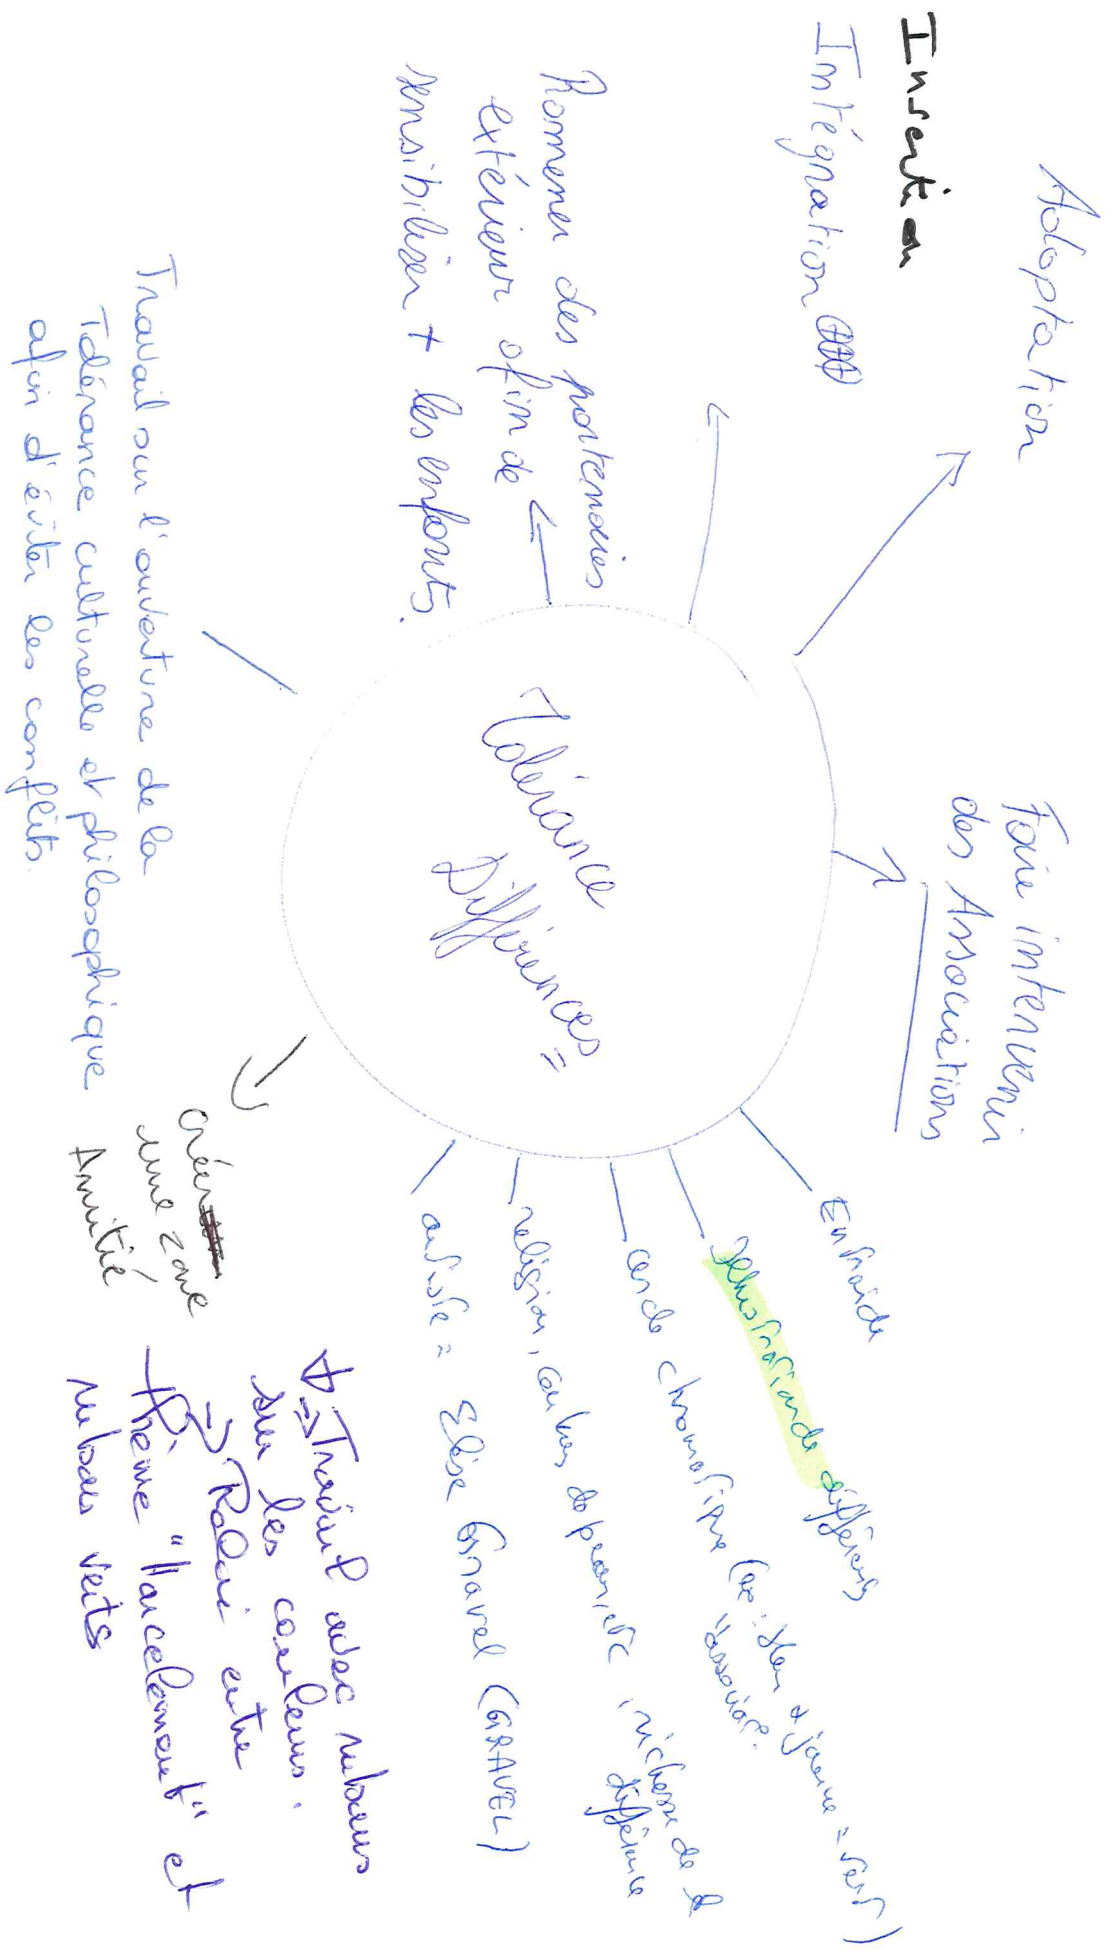 Adaptation
Insertion
Intégration
Ramener des partenaires
extérieur afin de
sensibiliser + les enfants.
Travail sur l'ouverture de la
Tolérance culturelle et philosophique
afin d'éviter les conflits.
Tolérance
Différences =
Faire intervenir
des Associations
Entraide
différents
cercle chromatique (ex : bleu + jaune = vert)
"association".
religion, couleurs de peau, etc richesse de la
différence
artiste = Elise Gravel (GRAVEL)
créer
une zone
Amitié
=> Travail avec rubans
sur les couleurs.
=> Relai entre
thème "harcèlement" et
rubans verts